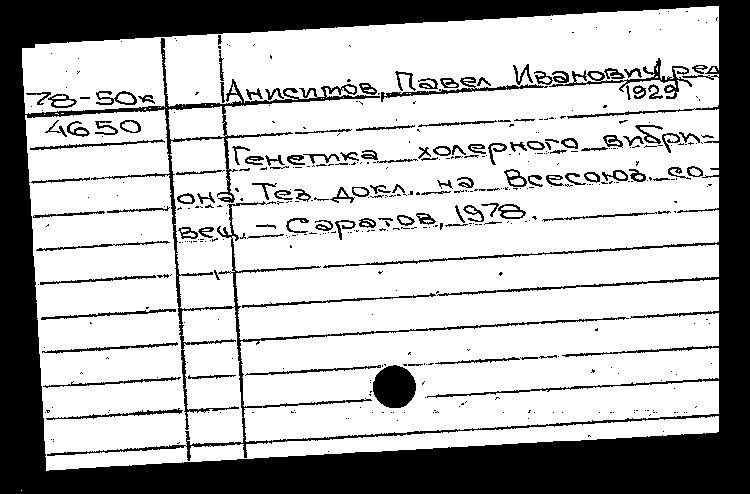 78-50к
4650
Анисимов, Павел Иванович, ред
1929
Генетика холерного вибри-
она: Тез. докл. на Всесоюз. со-
вещ. - Саратов, 1978.